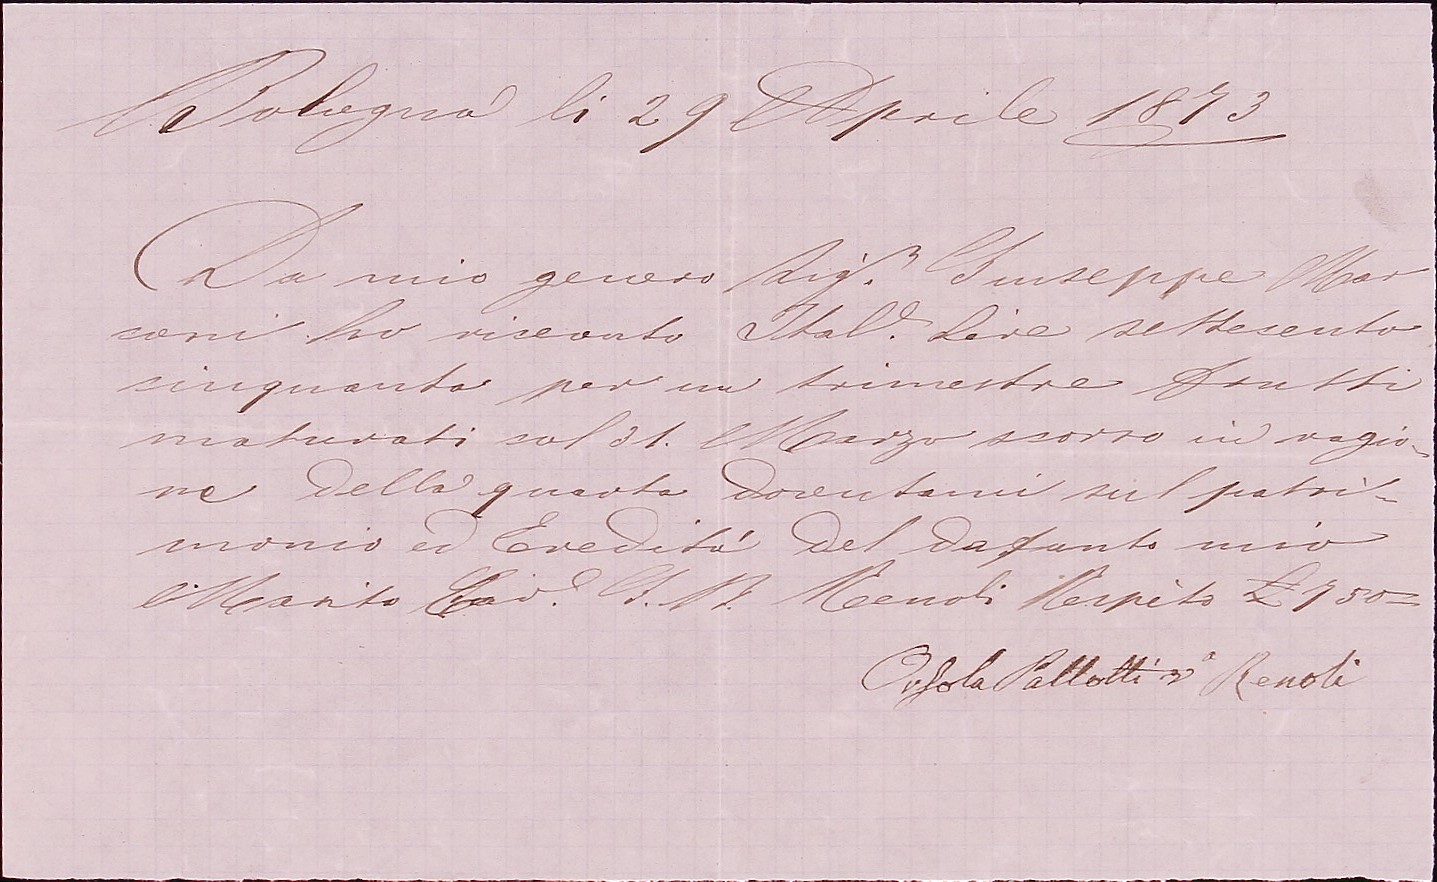 Bologna li 29 Aprile 1873
Da mio genero Sigr. Giuseppe Mar
coni ho ricevuto Itale. Lire settecento
cinquanta per un trimestre frutti
maturati col 31. Marzo scorso in ragio-
ne della quarta sul patri-
monio ed Eredità del defunto mio
Marito Cave. G. B. Renoli £ 750=
Orsola Pallotti va Renoli